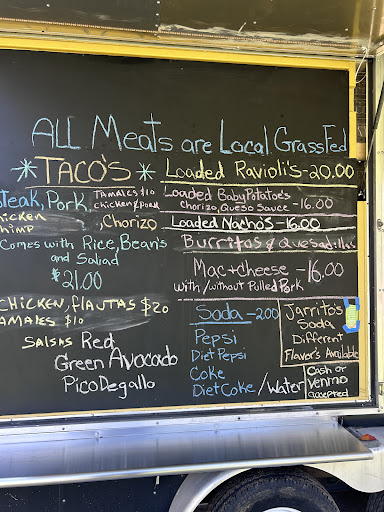 ALL Meats are Local GrassFed
*TACO'S*
teak, Pork,
Tamales $10
chicken & pork
hicken
himp
, Chorizo
Comes with Rice, Bean's
and Salad
$21.00
CHICKEN, flAUTAS $20
AMAlES $10
SALSAS Red
Green Avocado
Pico Degallo
Loaded Ravioli's-20.00
Loaded Baby Potatoe's
Chorizo, Queso Sauce -16.00
Loaded Nacho's -16.00
Burritos & Quesadillas
Mac+cheese -16.00
with/without Pulled Pork
Soda -2.00
Pepsi
Diet Pepsi
Coke
Diet Coke /Water
Jarrito's
Soda
Different
Flavor's Available
Cash or
Venmo
accepted